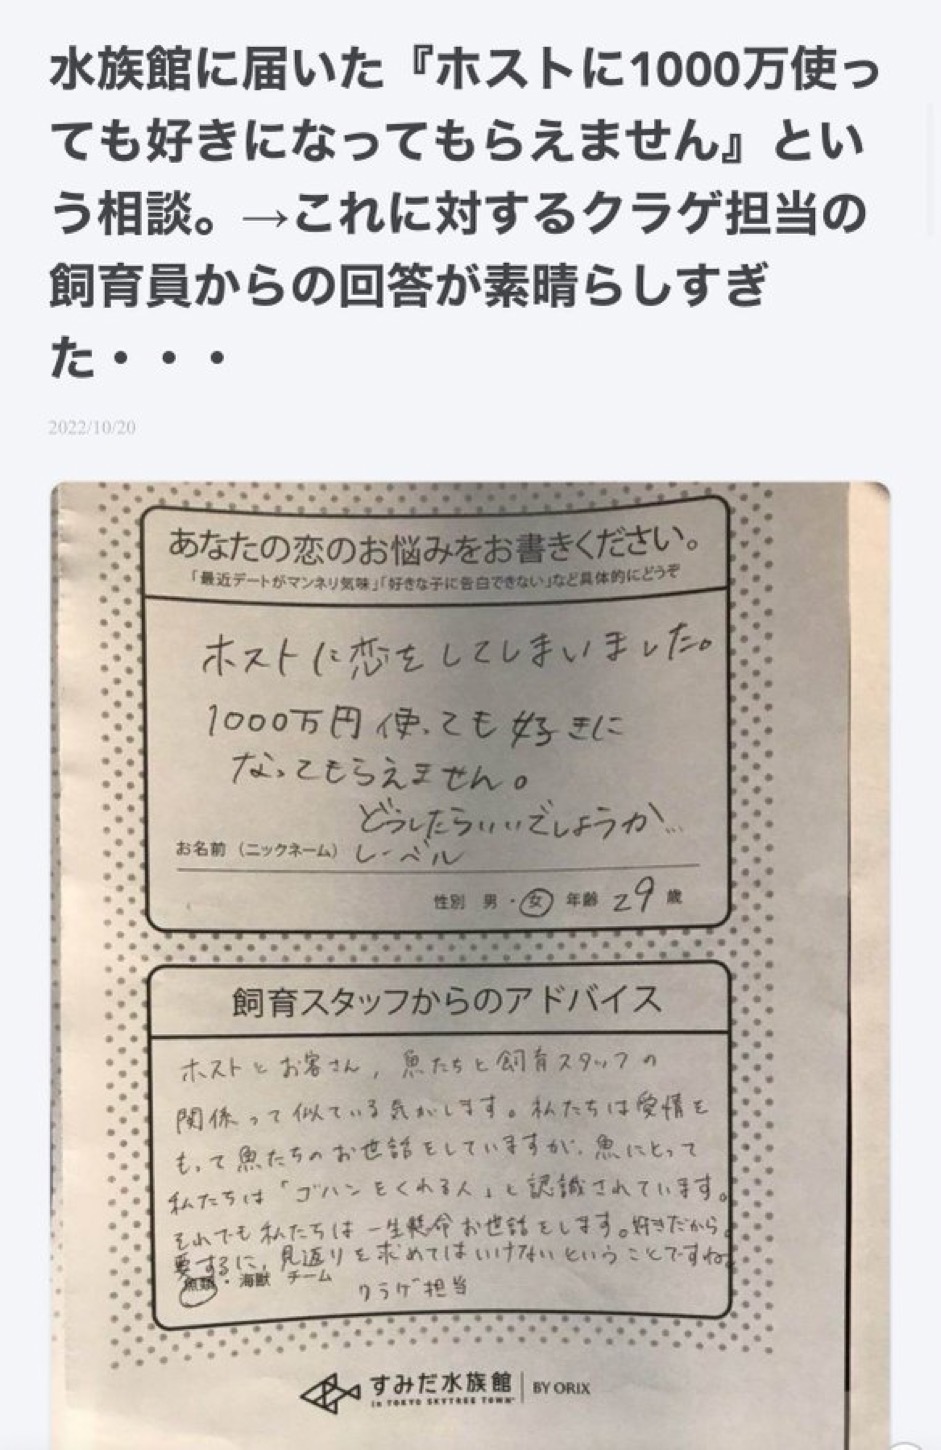 水族館に届いた『ホストに1000万使っ
ても好きになってもらえません』とい
う相談。→これに対するクラゲ担当の
飼育員からの回答が素晴らしすぎ
た・・・
2022/10/20
あなたの恋のお悩みをお書きください。
「最近デートがマンネリ気味」「好きな子に告白できない」など具体的にどうぞ
ホストに恋をしてしまいました。
1000万円使っても好きに
なってもらえません。
どうしたらいいでしょうか…
お名前（ニックネーム） レーベル
性別 男・女 年齢 29 歳
飼育スタッフからのアドバイス
ホストとお客さん、魚たちと飼育スタッフの
関係って似ている気がします。私たちは愛情を
もって魚たちのお世話をしていますが、魚にとって
私たちは「ゴハンをくれる人」と認識されています。
それでも私たちは一生懸命お世話をします。好きだから。
要するに、見返りを求めてはいけないということですね。
魚類・海獣 チーム クラゲ担当
すみだ水族館 BY ORIX
in TOKYO SKYTREE TOWN